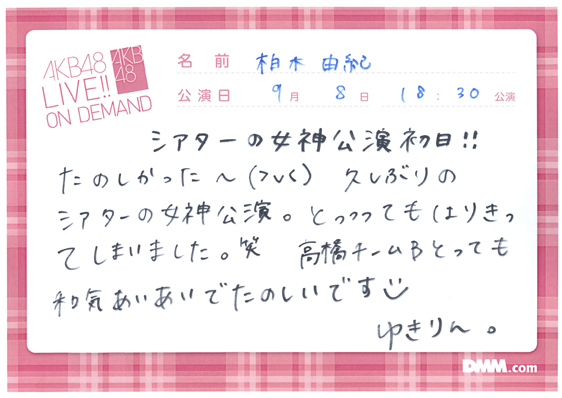 AKB48
LIVE!!
ON DEMAND
AKB
48
名 前 柏木 由紀
公演日 9月 8日 18:30 公演
シアターの女神公演初日!!
たのしかった〜(>v<) 久しぶりの
シアターの女神公演。とっっってもはりきっ
てしまいました。笑 高橋チームBとっても
和気あいあいでたのしいです
ゆきりん。
DMM.com